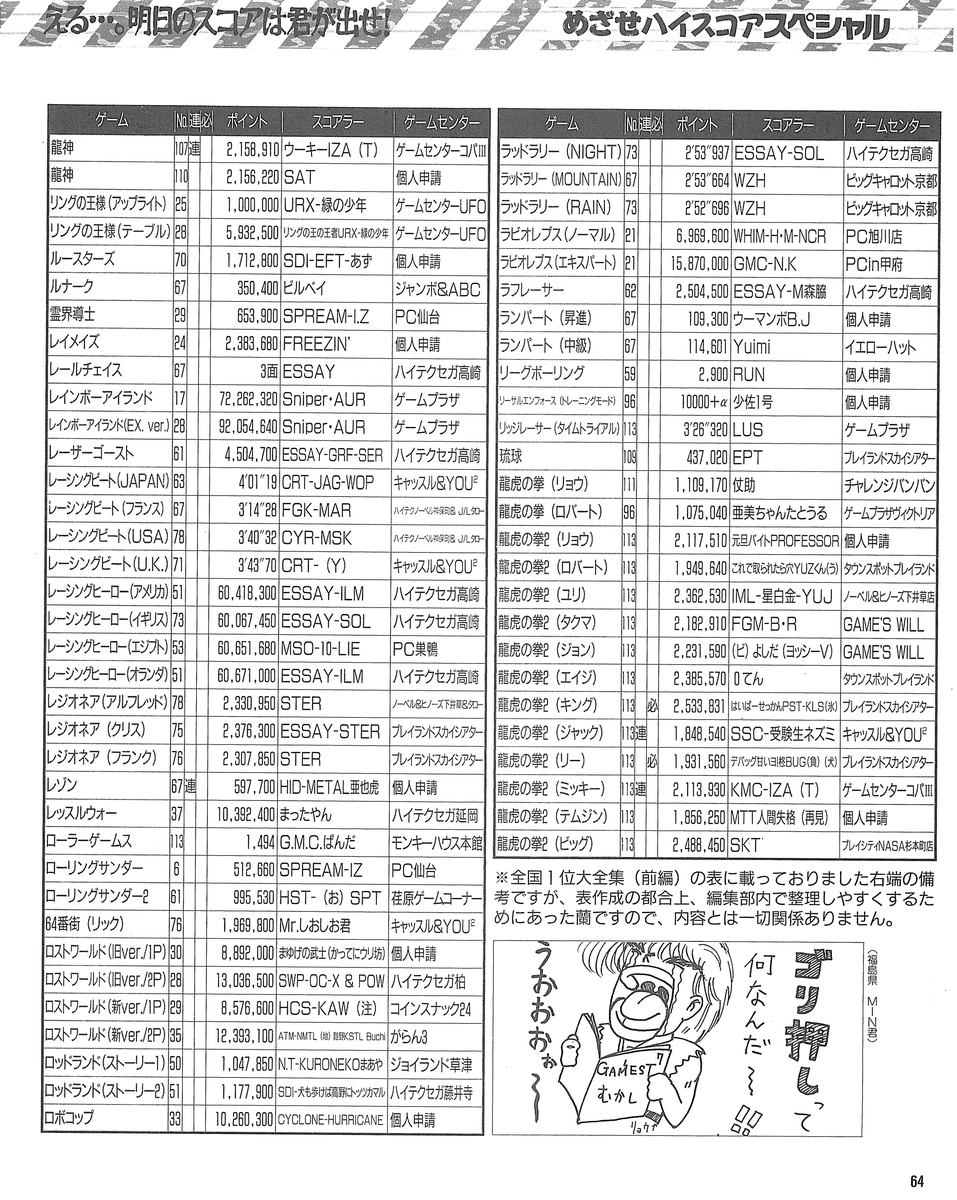 える…。明日のスコアは君が出せ!
めざせハイスコアスペシャル
ゲーム No. 連 必 ポイント スコアラー ゲームセンター
龍神 107 連 2,158,910 ウーキーIZA（T） ゲームセンターコパIII
龍神 110 2,156,220 SAT 個人申請
リングの王様（アップライト） 25 1,000,000 URX-緑の少年 ゲームセンターUFO
リングの王様（テーブル） 28 5,932,500 リングの王の王者URX-緑の少年 ゲームセンターUFO
ルースターズ 70 1,712,800 SDI-EFT-あず 個人申請
ルナーク 67 350,400 ビルベイ ジャンボ&ABC
霊界導士 29 653,900 SPREAM-I.Z PC仙台
レイメイズ 24 2,383,680 FREEZIN' 個人申請
レールチェイス 67 3面 ESSAY ハイテクセガ高崎
レインボーアイランド 17 72,262,320 Sniper・AUR ゲームプラザ
レインボーアイランド(EX. ver.) 28 92,054,640 Sniper・AUR ゲームプラザ
レーザーゴースト 61 4,504,700 ESSAY-GRF-SER ハイテクセガ高崎
レーシングビート(JAPAN) 63 4'01"19 CRT-JAG-WOP キャッスル&YOU²
レーシングビート（フランス） 67 3'14"28 FGK-MAR ハイテクノーベル神保町& J/Lタロー
レーシングビート（USA） 78 3'40"32 CYR-MSK ハイテクノーベル神保町& J/Lタロー
レーシングビート（U.K.） 71 3'43"70 CRT-（Y） キャッスル&YOU²
レーシングヒーロー(アメリカ) 51 60,418,300 ESSAY-ILM ハイテクセガ高崎
レーシングヒーロー(イギリス) 73 60,067,450 ESSAY-SOL ハイテクセガ高崎
レーシングヒーロー(エジプト) 53 60,651,680 MSO-10-LIE PC巣鴨
レーシングヒーロー(オランダ) 51 60,671,000 ESSAY-ILM ハイテクセガ高崎
レジオネア(アルフレッド) 78 2,330,950 STER ノーベル&ヒノーズ下井草&タロー
レジオネア（クリス） 75 2,376,300 ESSAY-STER プレイランドスカイシアター
レジオネア（フランク） 76 2,307,850 STER プレイランドスカイシアター
レゾン 67 連 597,700 HID-METAL亜也虎 個人申請
レッスルウォー 37 10,392,400 まったやん ハイテクセガ延岡
ローラーゲームス 113 1,494 G.M.C.ぱんだ モンキーハウス本館
ローリングサンダー 6 512,660 SPREAM-IZ PC仙台
ローリングサンダー2 61 995,530 HST-（お）SPT 荏原ゲームコーナー
64番街（リック） 76 1,969,800 Mr.しおしお君 キャッスル&YOU²
ロストワールド(旧ver./1P) 30 8,892,000 まゆげの武士(かってにウリ坊) 個人申請
ロストワールド(旧ver./2P) 28 13,036,500 SWP-OC-X & POW ハイテクセガ柏
ロストワールド(新ver./1P) 29 8,576,600 HCS-KAW（注） コインスナック24
ロストワールド(新ver./2P) 35 12,393,100 ATM-NMTL がらん3
ロッドランド(ストーリー1) 50 1,047,850 N.T-KURONEKOまあや ジョイランド草津
ロッドランド(ストーリー2) 51 1,177,900 SDI-犬も歩けば高野にトッツカマル ハイテクセガ藤井寺
ロボコップ 33 10,260,300 CYCLONE-HURRICANE 個人申請
ゲーム No. 連 必 ポイント スコアラー ゲームセンター
ラッドラリー（NIGHT） 73 2'53"937 ESSAY-SOL ハイテクセガ高崎
ラッドラリー（MOUNTAIN） 67 2'53"664 WZH ビッグキャロット京都
ラッドラリー（RAIN） 73 2'52"696 WZH ビッグキャロット京都
ラビオレプス(ノーマル) 21 6,969,600 WHIM-H・M-NCR PC旭川店
ラビオレプス(エキスパート) 21 15,870,000 GMC-N.K PCin甲府
ラフレーサー 62 2,504,500 ESSAY-M森脇 ハイテクセガ高崎
ランパート（昇進） 67 109,300 ウーマンボB.J 個人申請
ランパート（中級） 67 114,601 Yuimi イエローハット
リーグボーリング 59 2,900 RUN 個人申請
リーサルエンフォース（トレーニングモード） 96 10000+α 少佐1号 個人申請
リッジレーサー（タイムトライアル） 113 3'26"320 LUS ゲームプラザ
琉球 109 437,020 EPT プレイランドスカイシアター
龍虎の拳（リョウ） 111 1,109,170 仗助 チャレンジバンバン
龍虎の拳（ロバート） 96 1,075,040 亜美ちゃんたとうる ゲームプラザヴィクトリア
龍虎の拳2（リョウ） 113 2,117,510 元旦バイトPROFESSOR 個人申請
龍虎の拳2（ロバート） 113 1,949,640 これで取られたら穴YUZくん(う) タウンスポットプレイランド
龍虎の拳2（ユリ） 113 2,362,530 IML-星白金-YUJ ノーベル&ヒノーズ下井草店
龍虎の拳2（タクマ） 113 2,182,910 FGM-B・R GAME'S WILL
龍虎の拳2（ジョン） 113 2,231,590 (ピ)よしだ（ヨッシーV） GAME'S WILL
龍虎の拳2（エイジ） 113 2,385,570 0てん タウンスポットプレイランド
龍虎の拳2（キング） 113 必 2,533,831 はいぱーせっかんPST-KLS(氷) プレイランドスカイシアター
龍虎の拳2（ジャック） 113 連 1,848,540 SSC-受験生ネズミ キャッスル&YOU²
龍虎の拳2（リー） 113 必 1,931,560 デバッグ甘いヨ!柊BUG(負)（犬） プレイランドスカイシアター
龍虎の拳2（ミッキー） 113 連 2,113,930 KMC-IZA（T） ゲームセンターコパIII
龍虎の拳2（テムジン） 113 1,856,250 MTT人間失格（再見） 個人申請
龍虎の拳2（ビッグ） 113 2,488,450 SKT プレイシティNASA杉本町店
※全国1位大全集（前編）の表に載っておりました右端の備
考ですが、表作成の都合上、編集部内で整理しやすくするた
めにあった蘭ですので、内容とは一切関係ありません。
ゴリ押しって
何なんだ〜!!
うおおおぉ〜
GAMEST
むかし
リョウ
（福島県 MIN君）
64